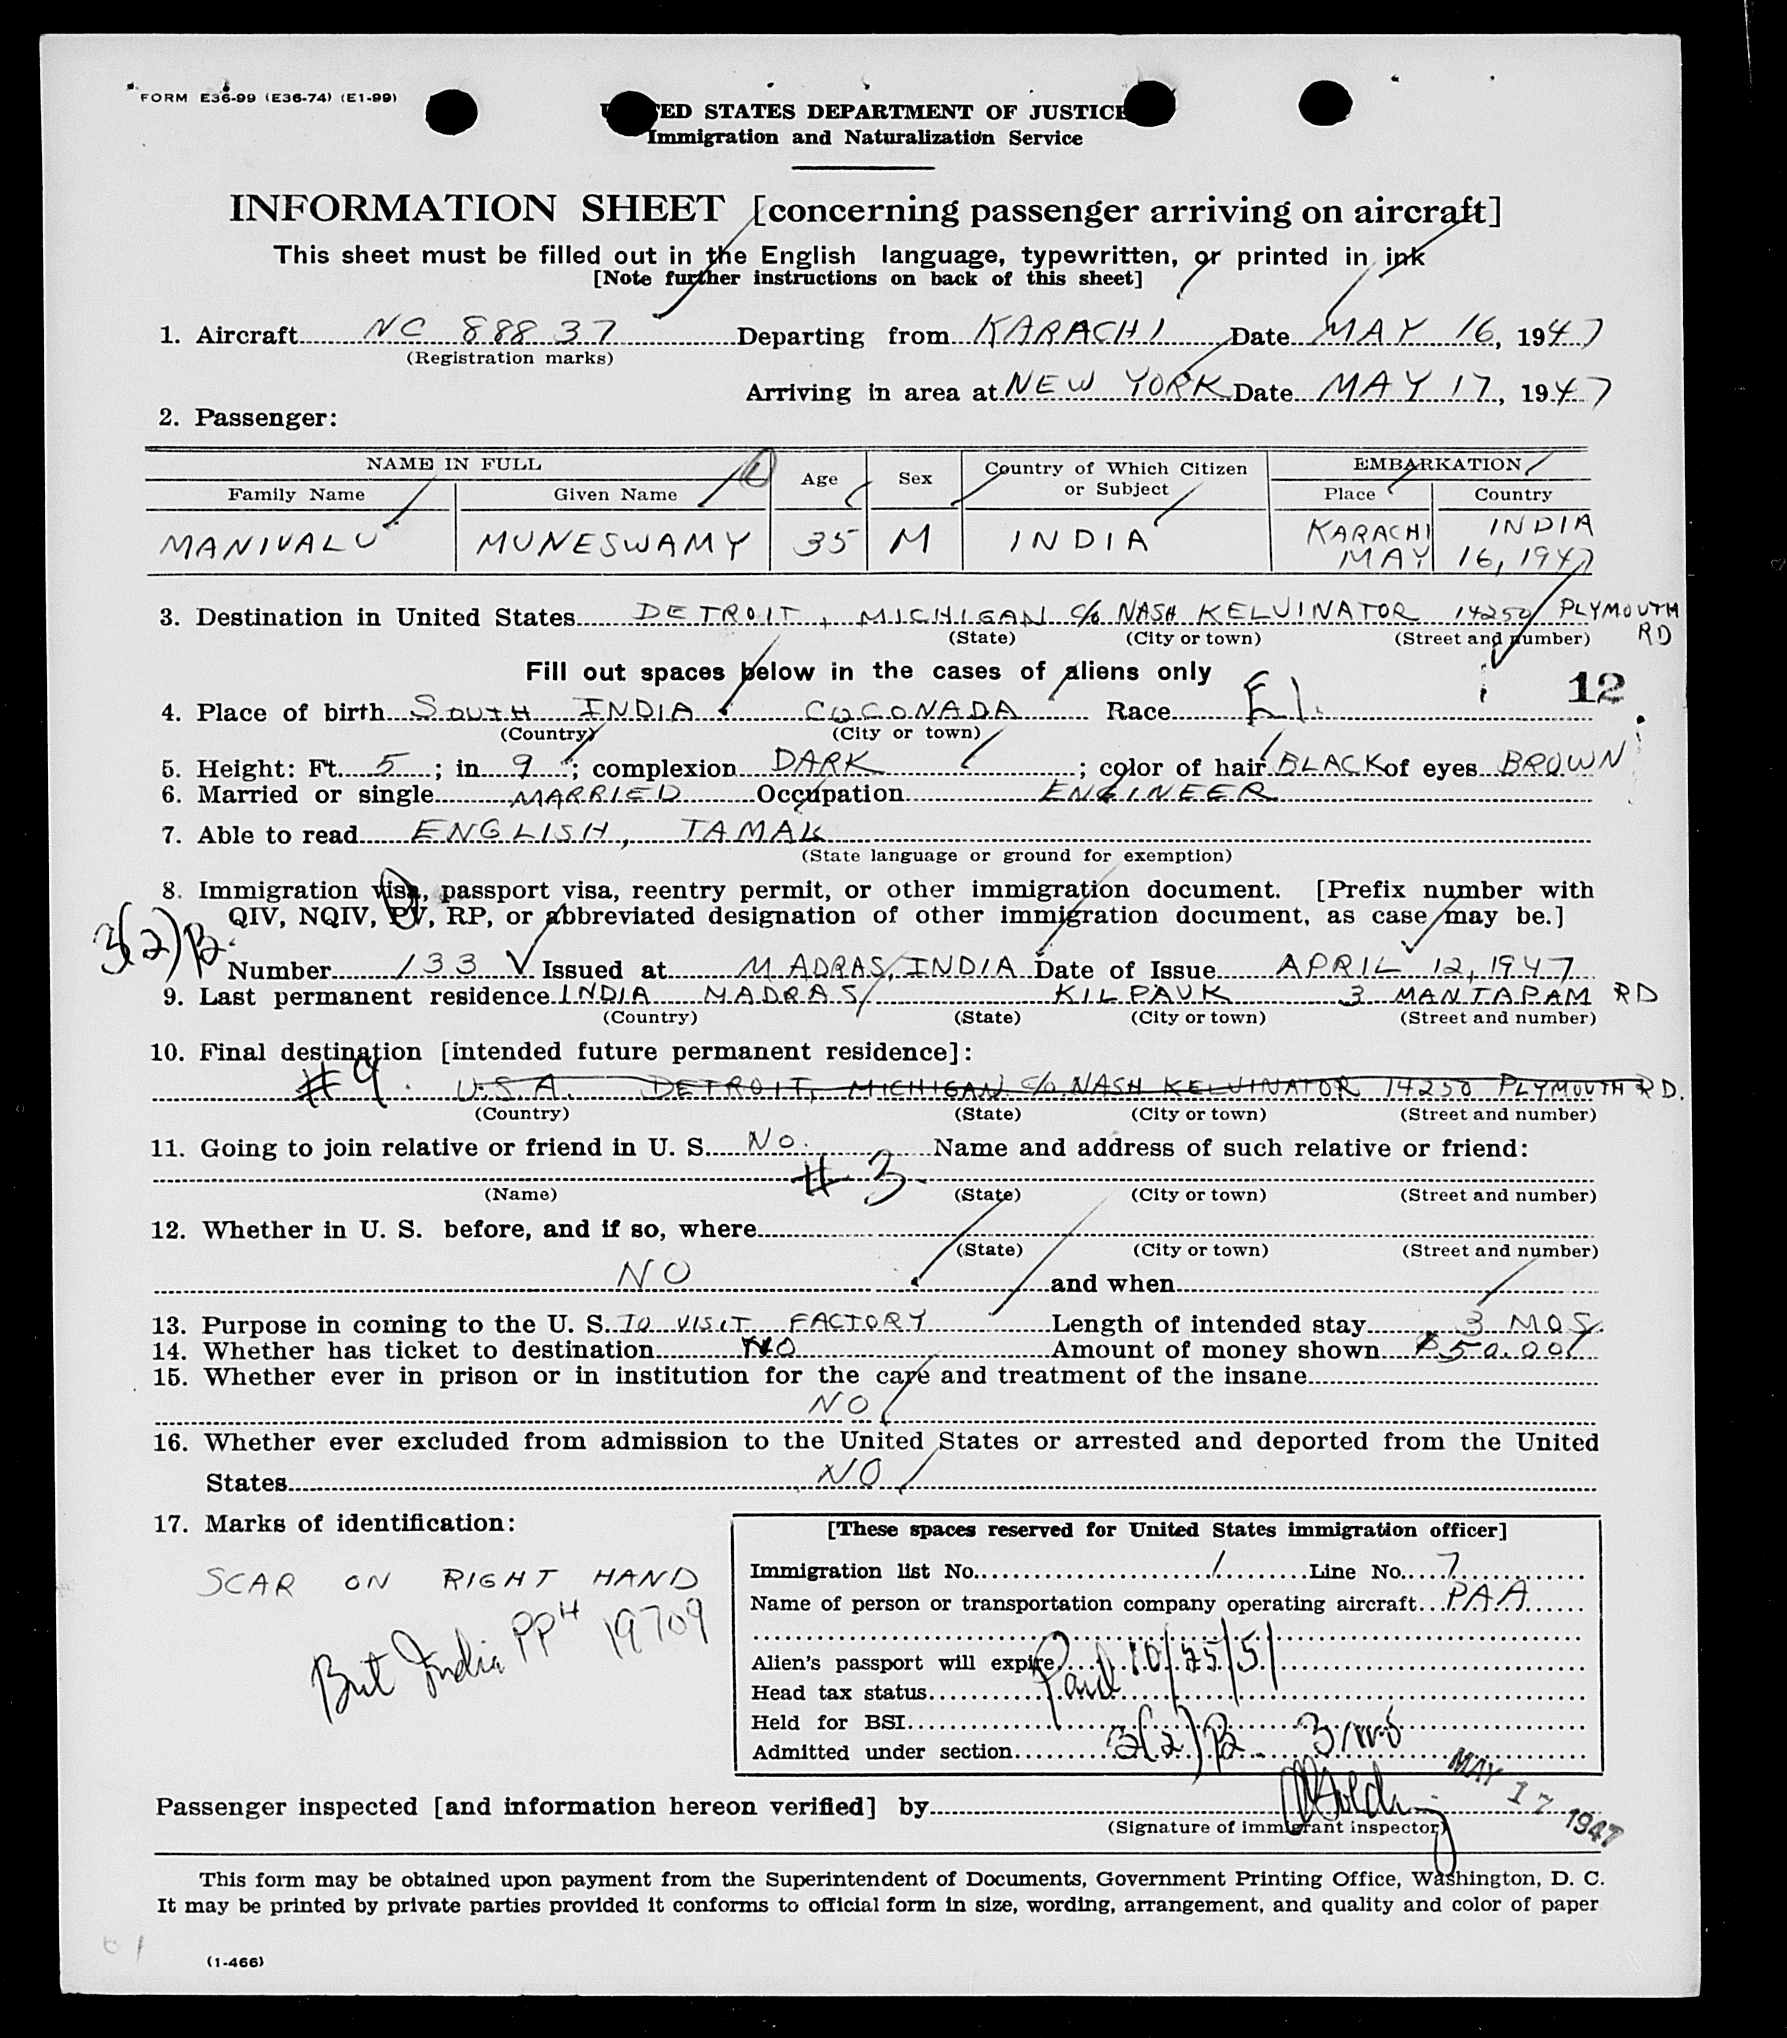 FORM E36-99 (E36-74) (E1-99)
ED STATES DEPARTMENT OF JUSTICE
Immigration and Naturalization Service
INFORMATION SHEET [concerning passenger arriving on aircraft]
This sheet must be filled out in the English language, typewritten, or printed in ink
[Note further instructions on back of this sheet]
1. Aircraft NC 88837 Departing from KARACHI Date MAY 16, 1947
(Registration marks)
Arriving in area at NEW YORK Date MAY 17, 1947
2. Passenger:
NAME IN FULL Age Sex Country of Which Citizen or Subject EMBARKATION
Family Name Given Name Place Country
MANIVALU MUNESWAMY 35 M INDIA KARACHI INDIA
MAY 16, 1947
3. Destination in United States DETROIT, MICHIGAN C/o NASH KELVINATOR 14250 PLYMOUTH RD
(State) (City or town) (Street and number)
Fill out spaces below in the cases of aliens only
12
4. Place of birth SOUTH INDIA COCONADA Race E I.
(Country) (City or town)
5. Height: Ft. 5; in. 9; complexion DARK; color of hair BLACK of eyes BROWN
6. Married or single MARRIED Occupation ENGINEER
7. Able to read ENGLISH, TAMAL
(State language or ground for exemption)
8. Immigration visa, passport visa, reentry permit, or other immigration document. [Prefix number with
QIV, NQIV, PV, RP, or abbreviated designation of other immigration document, as case may be.]
3(2)B
Number 133 Issued at MADRAS, INDIA Date of Issue APRIL 12, 1947
9. Last permanent residence INDIA MADRAS KILPAUK 3 MANTAPAM RD
(Country) (State) (City or town) (Street and number)
10. Final destination [intended future permanent residence]:
#9. U.S.A. DETROIT, MICHIGAN C/o NASH KELVINATOR 14250 PLYMOUTH RD.
(Country) (State) (City or town) (Street and number)
11. Going to join relative or friend in U. S. No. Name and address of such relative or friend:
#3
(Name) (State) (City or town) (Street and number)
12. Whether in U. S. before, and if so, where
(State) (City or town) (Street and number)
NO and when
13. Purpose in coming to the U. S. TO VISIT FACTORY Length of intended stay 3 MOS.
14. Whether has ticket to destination NO Amount of money shown $50.00
15. Whether ever in prison or in institution for the care and treatment of the insane
NO
16. Whether ever excluded from admission to the United States or arrested and deported from the United
States NO
17. Marks of identification:
SCAR ON RIGHT HAND
Brit India PP# 19709
[These spaces reserved for United States immigration officer]
Immigration list No. 1 Line No. 7
Name of person or transportation company operating aircraft PAA
Alien's passport will expire 10/25/51
Head tax status Paid
Held for BSI
Admitted under section 3(2)B 3 mos
MAY 17 1947
Passenger inspected [and information hereon verified] by
(Signature of immigrant inspector)
This form may be obtained upon payment from the Superintendent of Documents, Government Printing Office, Washington, D. C.
It may be printed by private parties provided it conforms to official form in size, wording, arrangement, and quality and color of paper
(1-466)